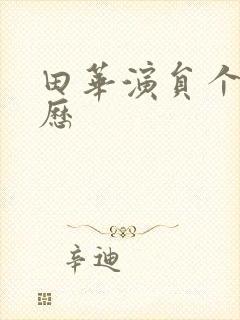 田華演員个
歷
辛迪